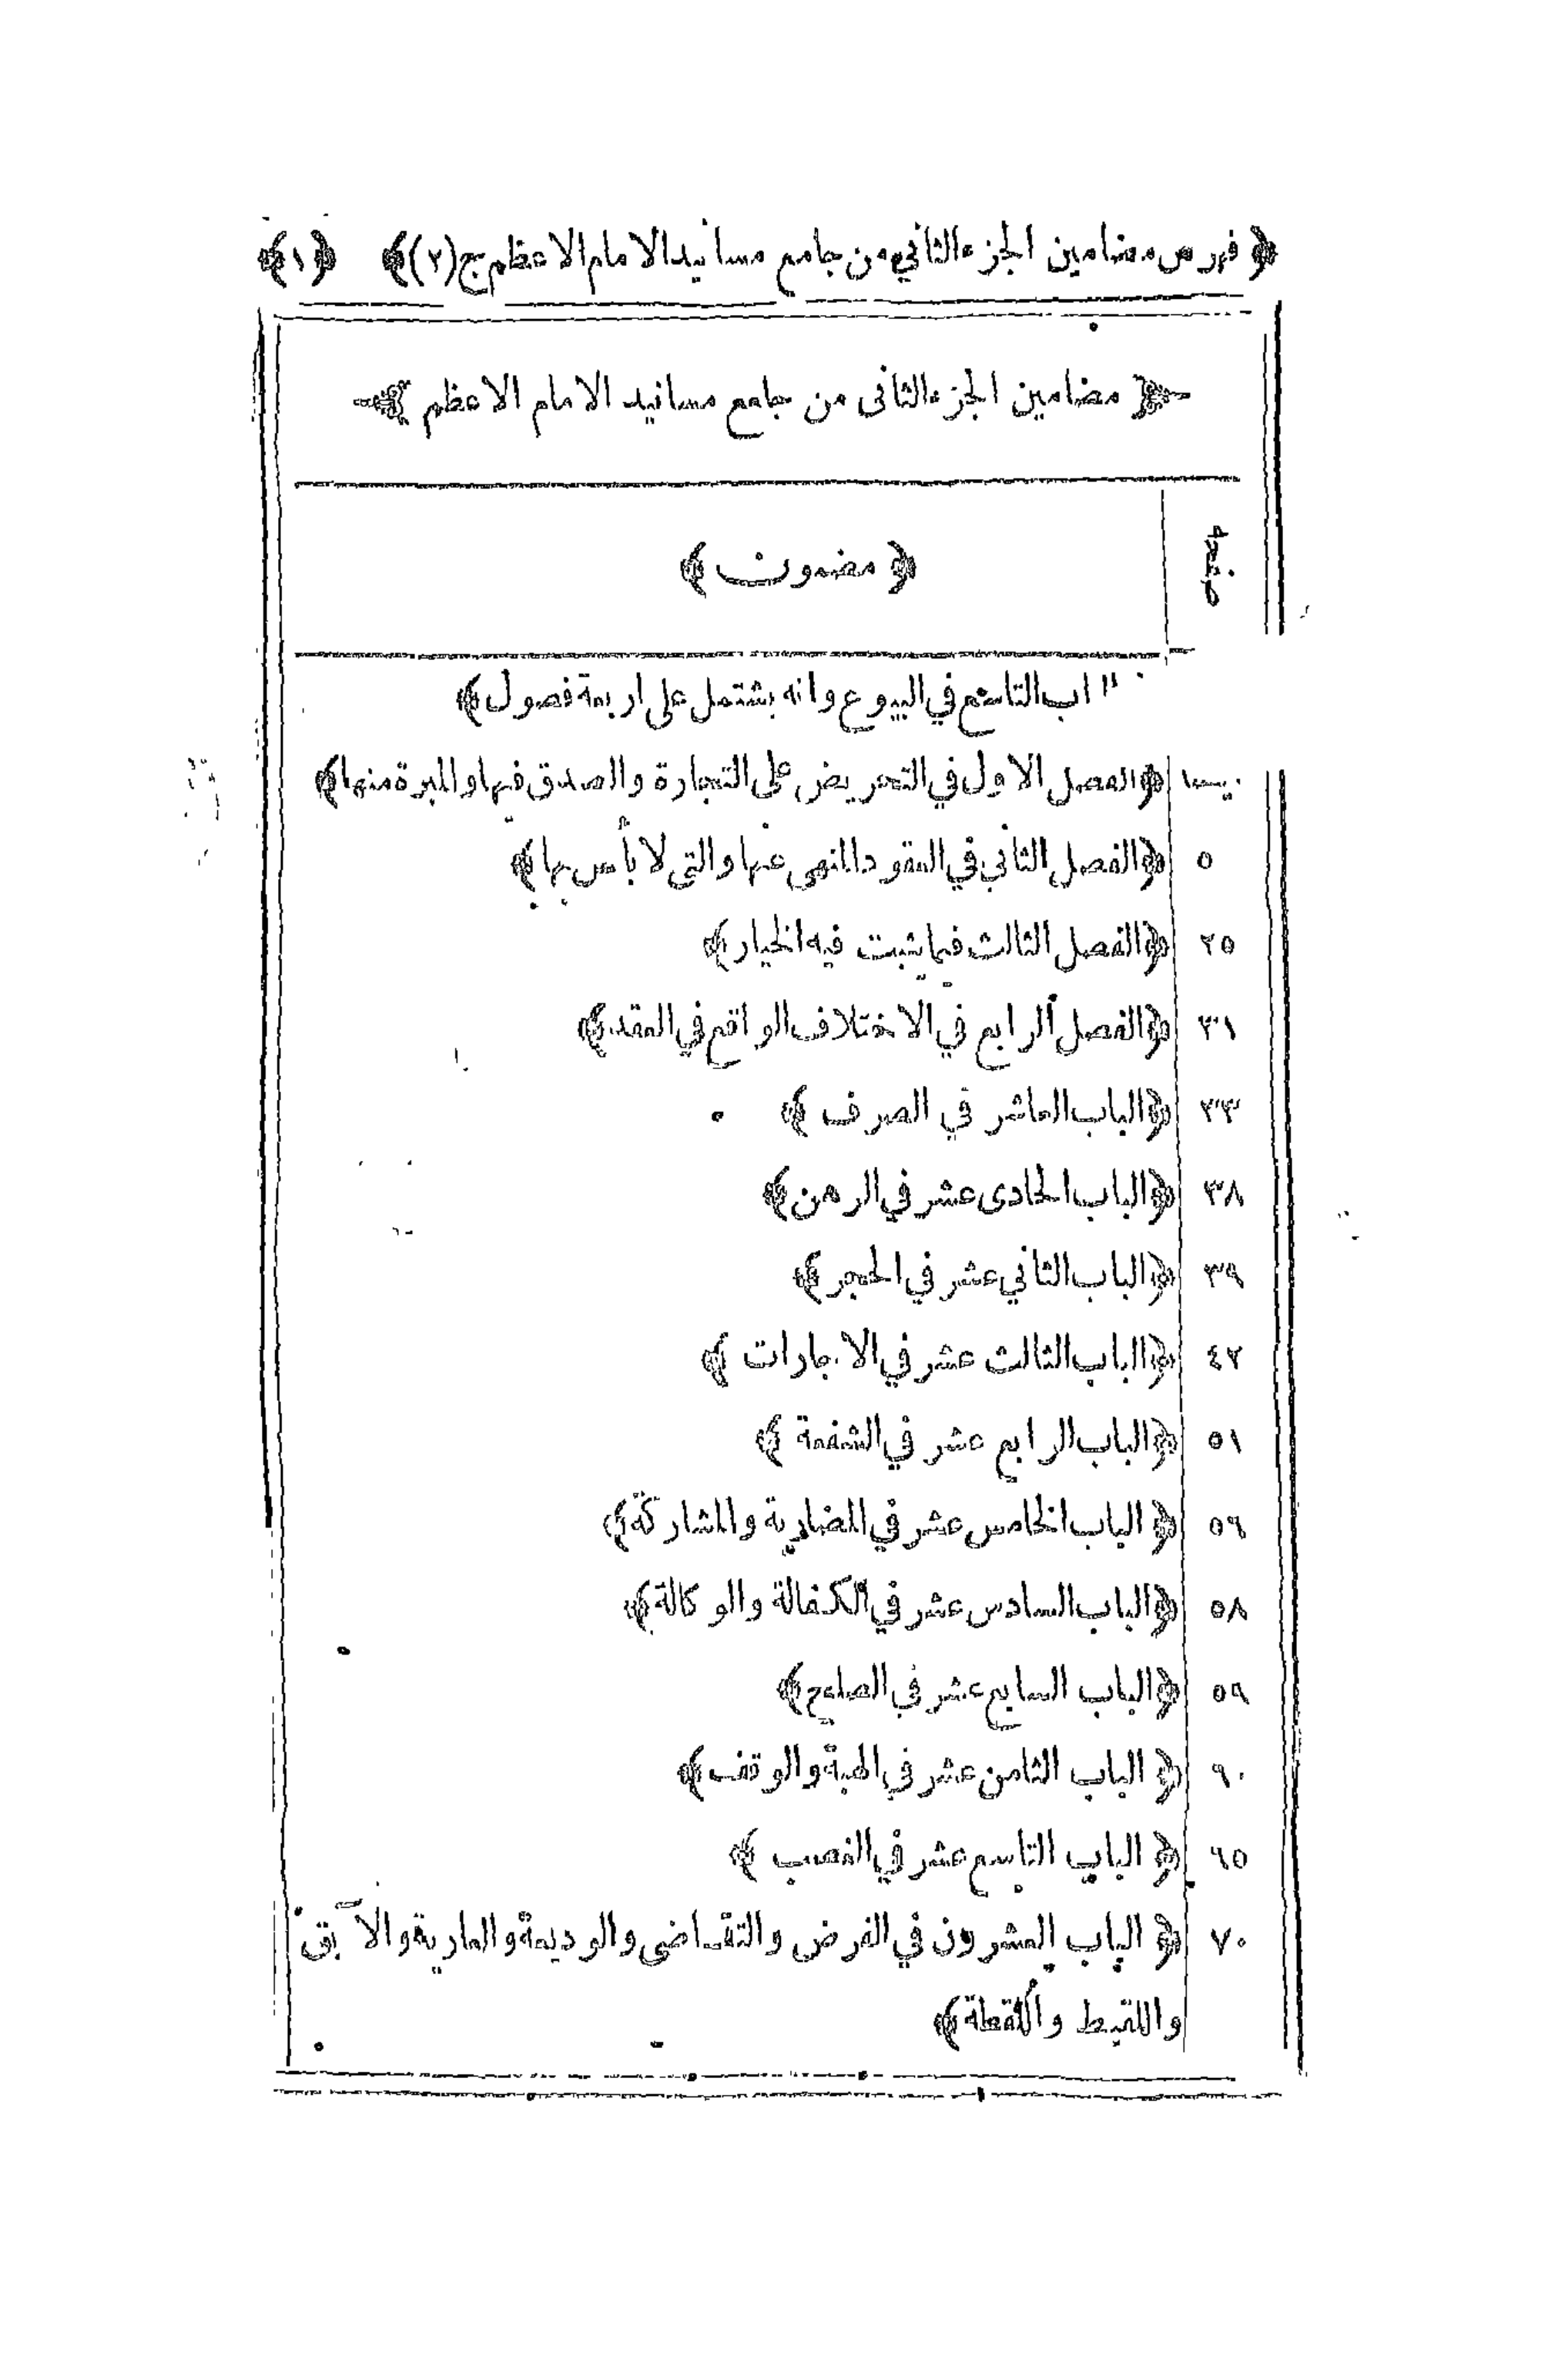 ﴿ فهرس مضامين الجزء الثاني من جامع مسانيد الامام الاعظم ج (٢) ﴾ ﴿ ١ ﴾
﴿ مضامين الجزء الثانى من جامع مسانيد الامام الاعظم ﴾
صفحه ﴿ مضمون ﴾
الباب التاسع في البيوع وانه يشتمل على اربعة فصول ﴾
﴿ الفصل الاول في التحريض على التجارة والصدق فيها والمبرة منها ﴾
٥ ﴿ الفصل الثاني في العقود المنهى عنها والتى لا بأس بها ﴾
٢٥ ﴿ الفصل الثالث فيما يثبت فيه الخيار ﴾
٣١ ﴿ الفصل الرابع في الاختلاف الواقع في العقد ﴾
٣٣ ﴿ الباب العاشر في الصرف ﴾
٣٨ ﴿ الباب الحادى عشر في الرهن ﴾
٣٩ ﴿ الباب الثاني عشر في الحجر ﴾
٤٢ ﴿ الباب الثالث عشر في الاجارات ﴾
٥١ ﴿ الباب الرابع عشر في الشفعة ﴾
٥٦ ﴿ الباب الخامس عشر في المضاربة والمشاركة ﴾
٥٨ ﴿ الباب السادس عشر في الكفالة والوكالة ﴾
٥٩ ﴿ الباب السابع عشر في الصلح ﴾
٦٠ ﴿ الباب الثامن عشر في الهبة والوقف ﴾
٦٥ ﴿ الباب التاسع عشر في الغصب ﴾
٧٠ ﴿ الباب العشرون في القرض والتقاضى والوديعة والعارية والآبق
واللقيط واللقطة ﴾